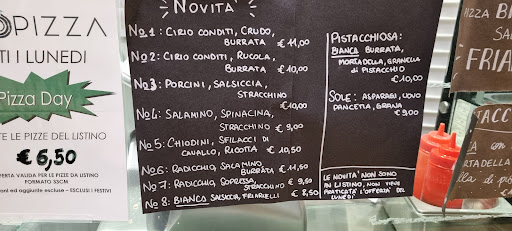 PIZZA
TI I LUNEDI
Pizza Day
TE LE PIZZE DEL LISTINO
€ 6,50
FERTA VALIDA PER LE PIZZE DA LISTINO
FORMATO 33CM
oni ed aggiunte escluse - ESCLUSI I FESTIVI
NOVITA'
No1: CIRIO CONDITI, CRUDO,
BURRATA €11,00
No2: CIRIO CONDITI, RUCOLA,
BURRATA €10,00
No3: PORCINI, SALSICCIA,
STRACCHINO €10,00
No4: SALAMINO, SPINACINA,
STRACCHINO €9,00
No5: CHIODINI, SFILACCI DI
CAVALLO, RICOTTA €10,50
No6: RADICCHIO, SALAMINO,
BURRATA €11,50
No7: RADICCHIO, SOPRESSA,
STRACCHINO €9,50
No8: BIANCO SALSICCIA, FRIARIELLI
€8,50
PISTACCHIOSA:
BIANCO BURRATA,
MORTADELLA, GRANELLA
DI PISTACCHIO
€10,00
SOLE: ASPARAGI, UOVO
PANCETTA, GRANA
€9,00
LE NOVITA' NON SONO
IN LISTINO, NON VIENE
PRATICATA L'OFFERTA DEL
LUNEDI
PIZZA